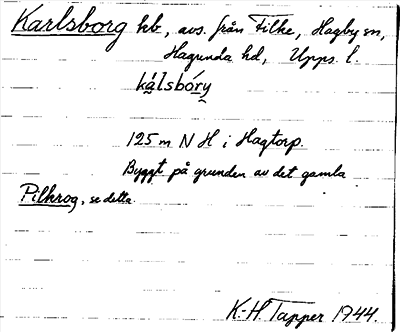 Karlsborg hb, avs. från Filke, Hagby sn,
Hagunda hd, Upps. l.
kálsbóry
125 m N H i Hagtorp.
Byggt på grunden av det gamla
Pilkrog, se detta
K-H. Tapper 1944.